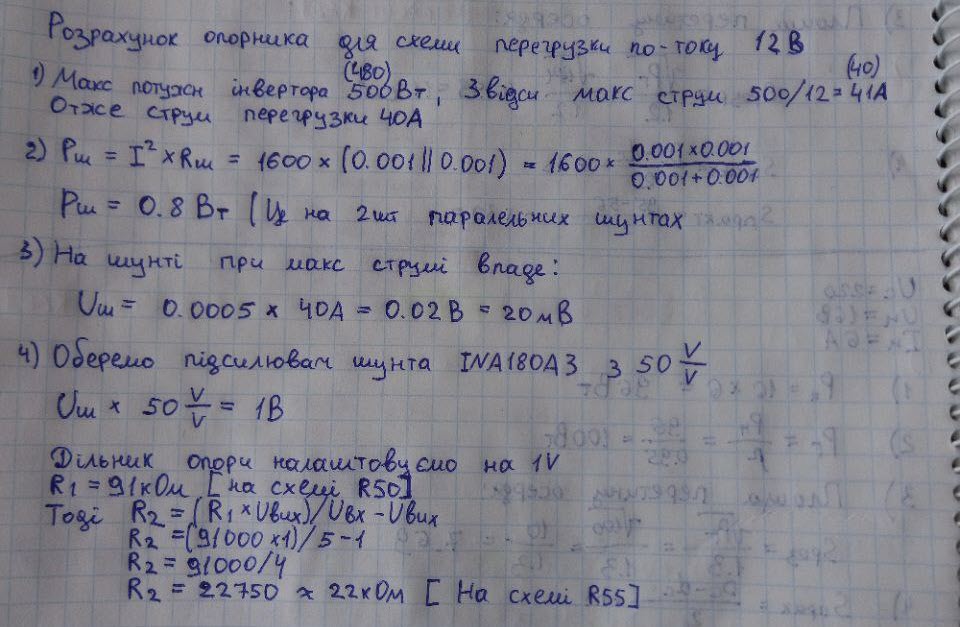 Розрахунок опорника для схеми перегрузки по-току 12В
(480) (40)
1) Макс потужн інвертора 500Вт, Звідси макс струм 500/12=41А
Отже струм перегрузки 40А
2) Pш = I² × Rш = 1600 × (0.001 || 0.001) = 1600 × (0.001×0.001)/(0.001+0.001)
Pш = 0.8 Вт (Це на 2шт паралельних шунтах
3) На шунті при макс струмі впаде:
Uш = 0.0005 × 40А = 0.02В = 20мВ
4) Оберемо підсилювач шунта INA180A3 з 50 V/V
Uш × 50 V/V = 1В
Дільник опори налаштовуємо на 1V
R1 = 91кОм [на схемі R50]
Тоді R2 = (R1 × Uвих)/Uвх - Uвих
R2 = (91000 × 1)/5 - 1
R2 = 91000/4
R2 = 22750 ≈ 22кОм [На схемі R55]